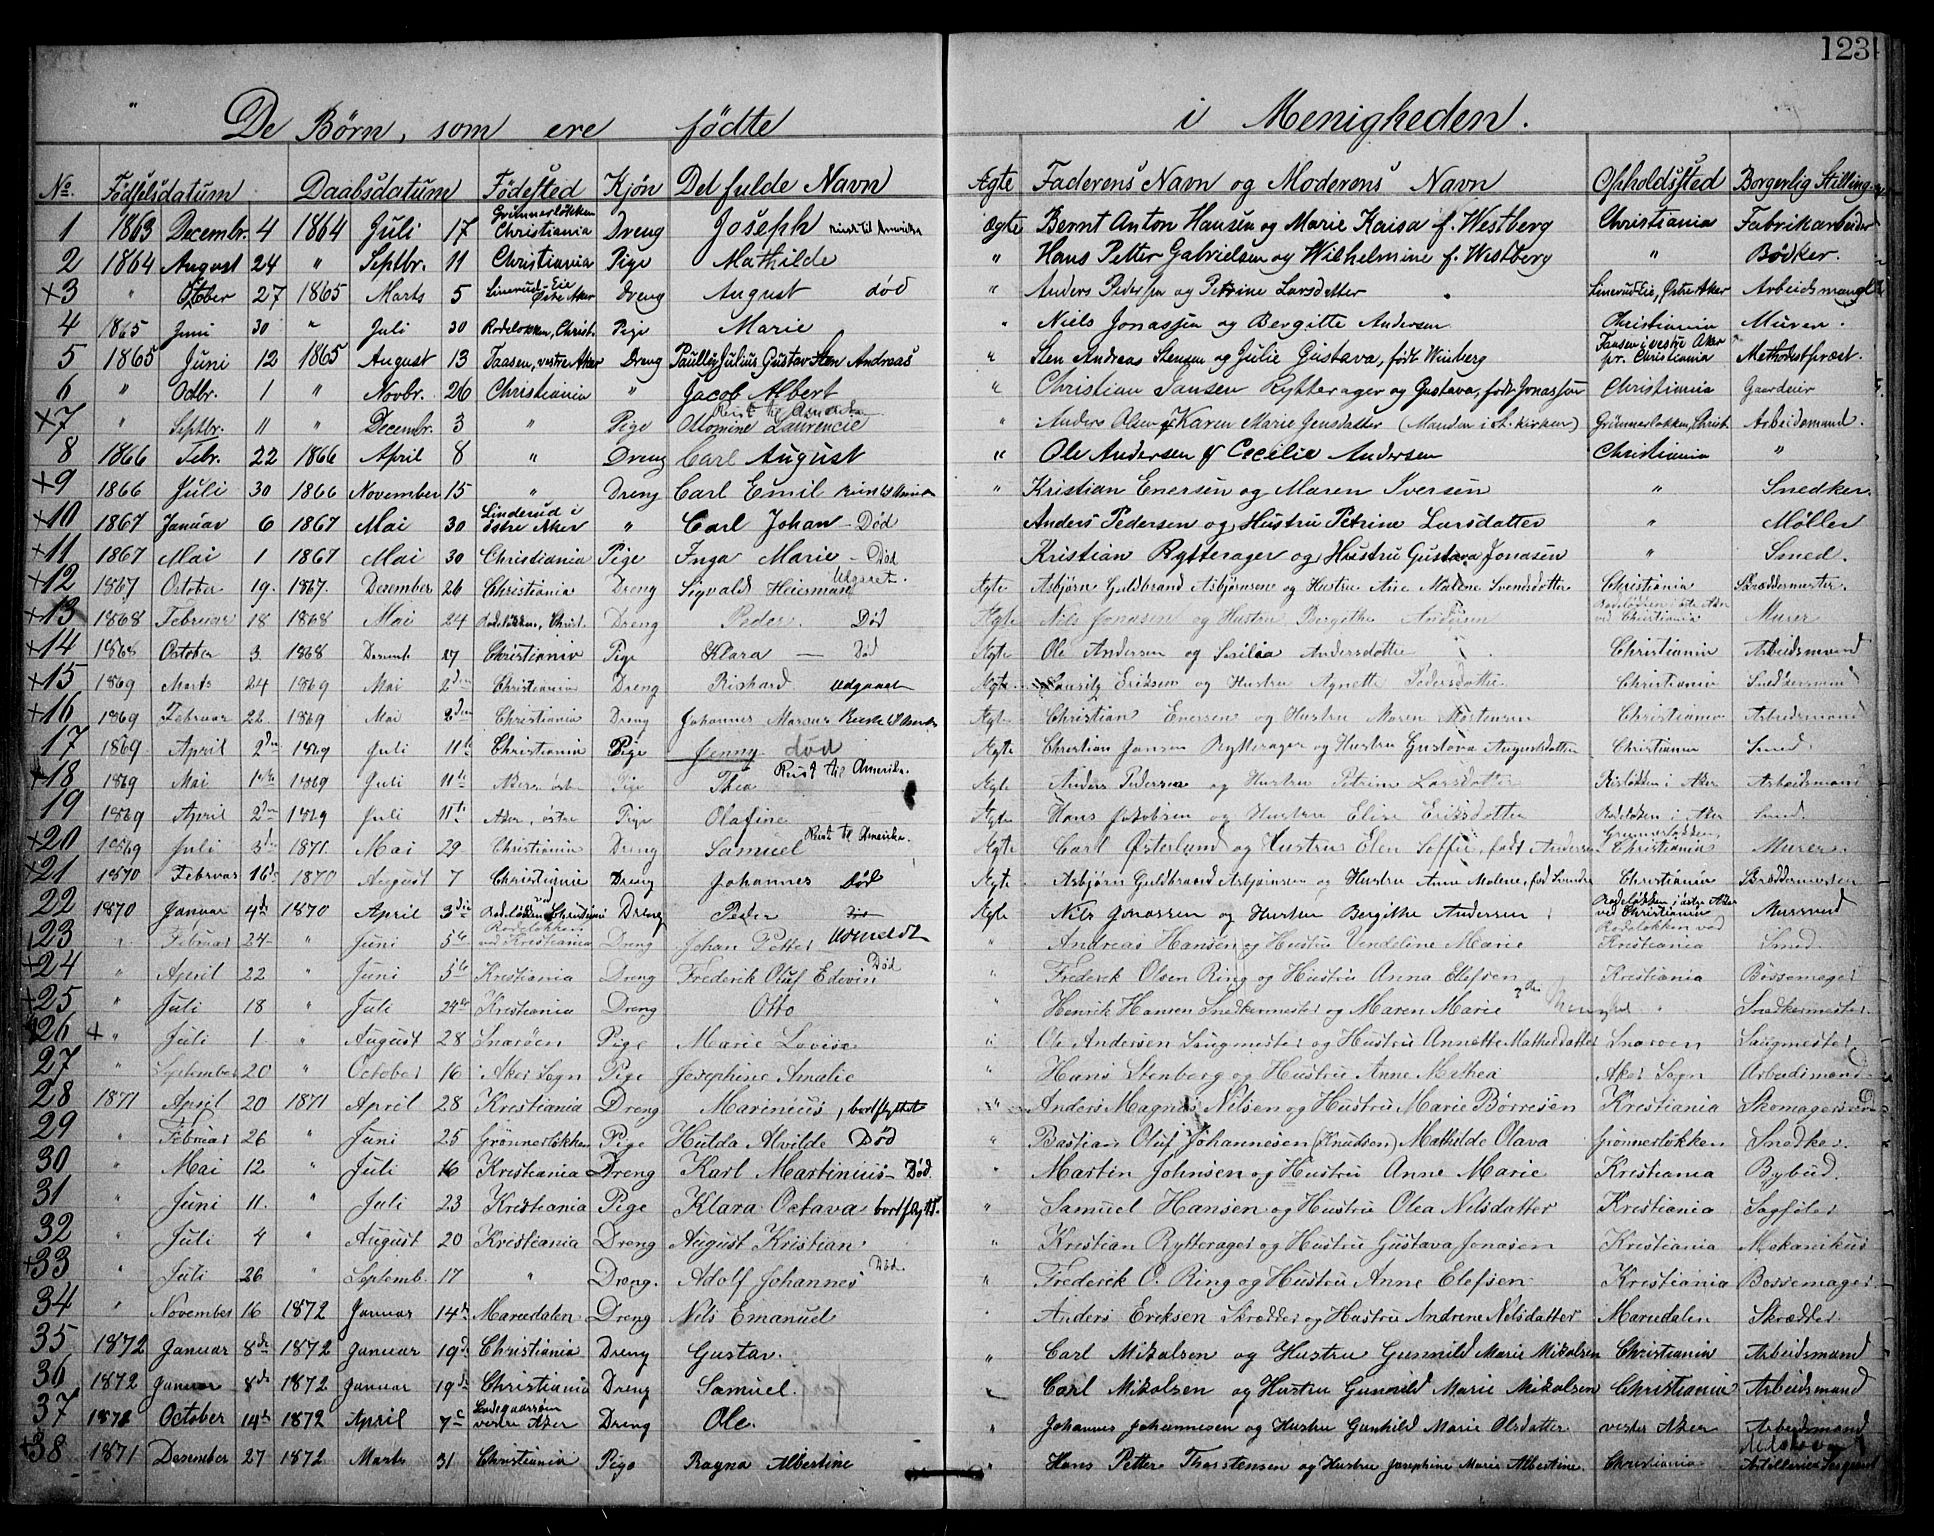 123
De Børn, som ere fødte i Menigheden.
No. Fødselsdatum Daabsdatum Fødested Kjøn Det fulde Navn Ægte Faderens Navn og Moderens Navn Opholdssted Borgerlig Stilling
1 1863 Decembr. 4 1864 Juli 17 Grünnerløkken Christiania Dreng Joseph reist til Amerika Ægte Bernt Anton Hansen og Marie Kaisa f. Westberg Christiania Fabrikarbeider
2 1864 August 24 " Septbr. 11 Christiania Pige Mathilde " Hans Petter Gabrielsen og Wilhelmine f. Westberg " Bødker.
+3 " Octber 27 1865 Marts 5 Linerud-Eie Østre Aker Dreng August død " Anders Pedersen og Petrine Larsdatter Linerud Eie, Østre Aker Arbeidsmand
4 1865 Juni 30 " Juli 30 Rodeløkken, Christ. Pige Marie " Niels Jonassen og Bergitte Andersen Christiania Murer.
5 1865 Juni 12 1865 August 13 Taasen, vestre Aker Dreng Julius Gustav Sten Andreas " Sten Andreas Stensen og Julie Gustava, født Winberg Taasen i vestre Aker pr. Christiania Methodistpræst.
6 " Octbr. 1 " Novbr. 26 Christiania " Jacob Albert " Christian Jansen Rytterager og Gustava, født Jonassen Christiania Gaardeier
+7 " Septbr. 11 " Decembr. 3 " Pige Ottomine Laurencie Reist til Amerika " Anders Olsen og Karen Marie Jensdatter (Manden i St. kirken) Grünnerløkken, Christ. Arbeidsmand.
8 1866 Febr. 22 1866 April 8 " Dreng Carl August " Ole Andersen og Cecilie Andersen Christiania "
+9 1866 Juli 30 1866 November 15 " Dreng Carl Emil Reist til Amerika " Kristian Enersen og Maren Iversen " Snedker.
+10 1867 Januar 6 1867 Mai 30 Linderud i østre Aker " Carl Johan - Død Anders Pedersen og Hustru Petrine Larsdatter " Møller
+11 1867 Mai 1 1867 Mai 30 Christiania Pige Inga Marie - Død Kristian Rytterager og Hustru Gustava Jonasen " Smed.
+12 1867 October 19. 1867. Desember 26 Christiania Dreng Sigvald Heierman Udgaaet. Ægte Asbjørn Guldbrand Asbjørnsen og Hustru Ane Malene Svendsdatter Christiania Skræddermester.
+13 1868 Februar 18 1868 Mai 24 Rodeløkken, Christ. Dreng Peder. Død Ægte Niels Jonasen og Hustru Bergithe Andersen Rodeløkken i østre Aker ved Christiania Murer
+14 1868 October 3. 1868 Desemb. 27 Christiania Pige Klara - Død Ægte Ole Andersen og Andersdatter Christiania Arbeidsmand
+15 1869 Marts 24 1869 Mai 2den Christiania Dreng Richard Udgaaet Ægte. Lauritz Eriksen og Hustru Agnette Pedersdatter Christiania
+16 1869 Februar 22. 1869 Mai 2den Christiania Dreng Johannes Marcus Reist til Amerika Ægte Christian Enersen og Hustru Maren Christiania Arbeidsmand
17 1869 April 2den 1869 Juli 11te Christiania Pige Jenny død Ægte Christian Jansen Rytterager og Hustru Gustava Augustdatter Christiania Smed
+18 1869 Mai 1869 Juli 11te Aker, østre Pige Thea Reist til Amerika. Ægte Anders Pedersen og Hustru Petrine Larsdatter i Aker Arbeidsmand
19 1869 April 2den 1869 Juli 11te Aker, østre Pige Olafine Ægte Hans Jakobsen og Hustru Elise Eriksdatter Rodeløken i Aker Smed.
+20 1869 Juli 3de 1871. Mai 29 Christiania Dreng Samuel Reist til Amerika. Ægte Carl Østerlund og Hustru Elen Soffie, født Andersen Grünnerløkken, Christiania Murer.
+21 1870 Februar 16de 1870 August 7 Christiania Dreng Johannes Død Ægte Asbjørn Guldbrand Asbjørnsen og Hustru Anne Malene, fød Christiania Skræddermester
22 1870 Januar 4de 1870 April 3die Rodeløkken ved Christiania Dreng Peder Død Ægte Nils Jonassen og Hustru Bergithe Andersen Rodeløkken i østre Aker ved Christiania
+23 " Februar 24 " Juni 5te Rodeløkken ved Kristiania Dreng Johan Petter Udmeldt " Andreas Hansen og Hustru Vendeline Marie Rodeløkken ved Kristiania Smed.
+24 " April 22 " Juni 5te Kristiania Dreng Frederik Oluf Edevin Død " Frederik Olsen Ring og Hustru Anna Elefsen Kristiania Bøssemager
+25 " Juli 18 " Juli 24de Kristiania Dreng Otto " Henrik Hansen Snedkermester og Maren Marie " Snedkermester.
+26 + " Juli 1. " August 28 Snarøen Pige Marie Lovise " Ole Andersen Saugmester og Hustru Annette Mathedatter Snarøen Saugmester
27 " September 20 " October 16 Aker Sogn Pige Josephine Amalie " Hans Stenberg og Hustru Anne Mathea Aker Sogn Arbeidsmand
28 1871 April 20 1871 April 28 Kristiania Dreng Marinius, bortflyttet " Anders Magnus Nilsen og Hustru Marie Børresen Kristiania
29 " Februar 26 " Juni 25 Grønnerløkken Pige Hulda Alvilde Død " Bastian Oluf Johannesen (Knudsen) Mathilde Olava Grønnerløkken Snedker
30 " Mai 12 " Juli 16 Kristiania Dreng Karl Martinius - Død. " Martin Johnsen og Hustru Anne Marie Kristiania Bybud.
31 " Juni 11. " Juli 23 Kristiania Pige Klara Octava bortflytt. " Samuel Hansen og Hustru Olea Nilsdatter Kristiania Sagfiler
32 " Juli 4 " August 20 Kristiania Dreng August Kristian. " Kristian Rytterager og Hustru Gustava Jonasen Kristiania Mekanikus
+33 " Juli 26 " Septemb. 17 " Dreng. Adolf Johannes Død. " Frederik O. Ring og Hustru Anne Elefsen. Kristiania Bøssemager
34 " November 16 1872 Januar 14de Maridalen Dreng Nils Emanuel " Anders Ericksen Skrædder og Hustru Andrene Nilsdatter Maridalen Skrædder
35 1872 Januar 8de 1872 Januar 19de Christiania Dreng Gustav. " Carl Mikalsen og Hustru Gunnild Marie Mikalsen Christiania Arbeidsmand
36 1872 Januar 8de 1872 Januar 19de Christiania Dreng Samuel. " Carl Mikalsen og Hustru Gunnild Marie Mikalsen Christiania Arbeidsmand
37 1871 October 14de 1872 April 7 vestre Aker Dreng Ole. " Johannes Johannesen og Hustru Gunhild Marie Olsdatter vestre Aker Arbeidsmand
+38 1871 Desember 27 1872 Marts 31 Christiania Pige Ragna Albertine " Hans Petter Thorstensen og Hustru Josephine Marie Albertine. Christiania Artilleri Sergeant